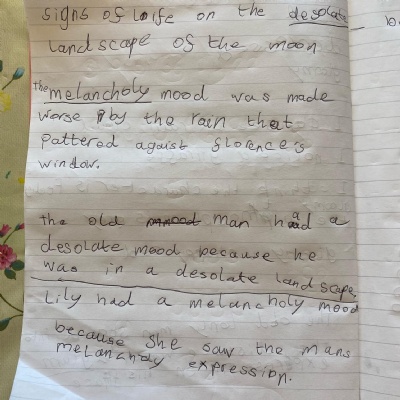 signs of life on the desolate
landscape of the moon
the melancholy mood was made
worse by the rain that
pattered against florence's
window.
the old man had a
desolate mood because he
was in a desolate landscape.
Lily had a melancholy mood
because she saw the mans
melancholy expression.